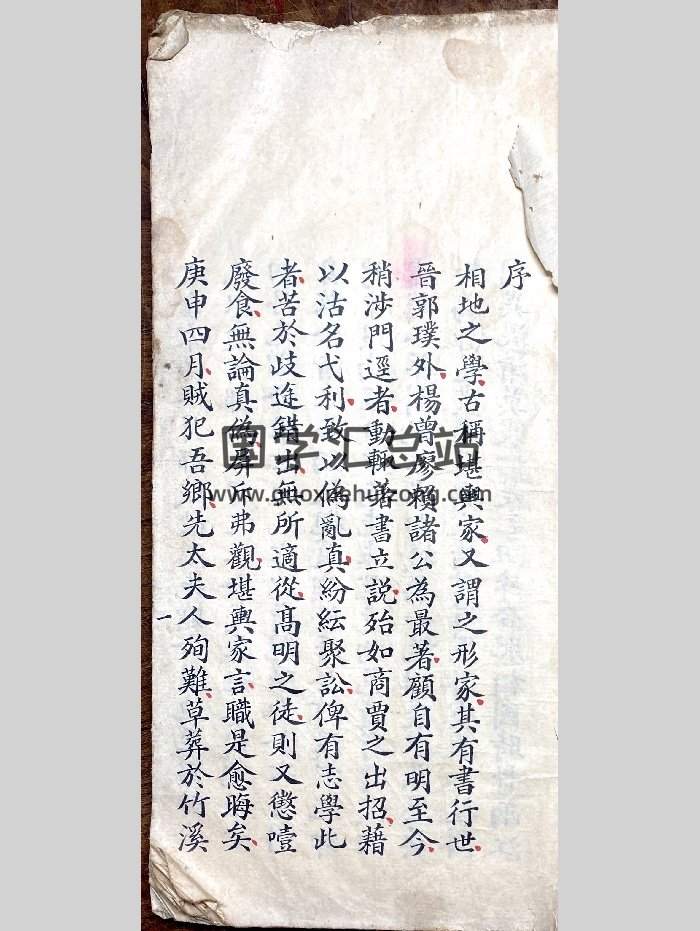 序
相地之學古稱堪輿家又謂之形家其有書行世
晉郭璞外楊曾廖賴諸公為最著顧自有明至今
稍涉門逕者動輒著書立説殆如商賈之出招藉
以沽名弋利致以偽亂真紛紜聚訟俾有志學此
者苦於歧途錯出無所適從高明之徒則又懲噎
廢食無論真偽屏斥弗觀堪輿家言職是愈晦矣
庚申四月賊犯吾鄉先太夫人殉難草葬於竹溪
一
国学汇总站
www.guoxuehuizong.com